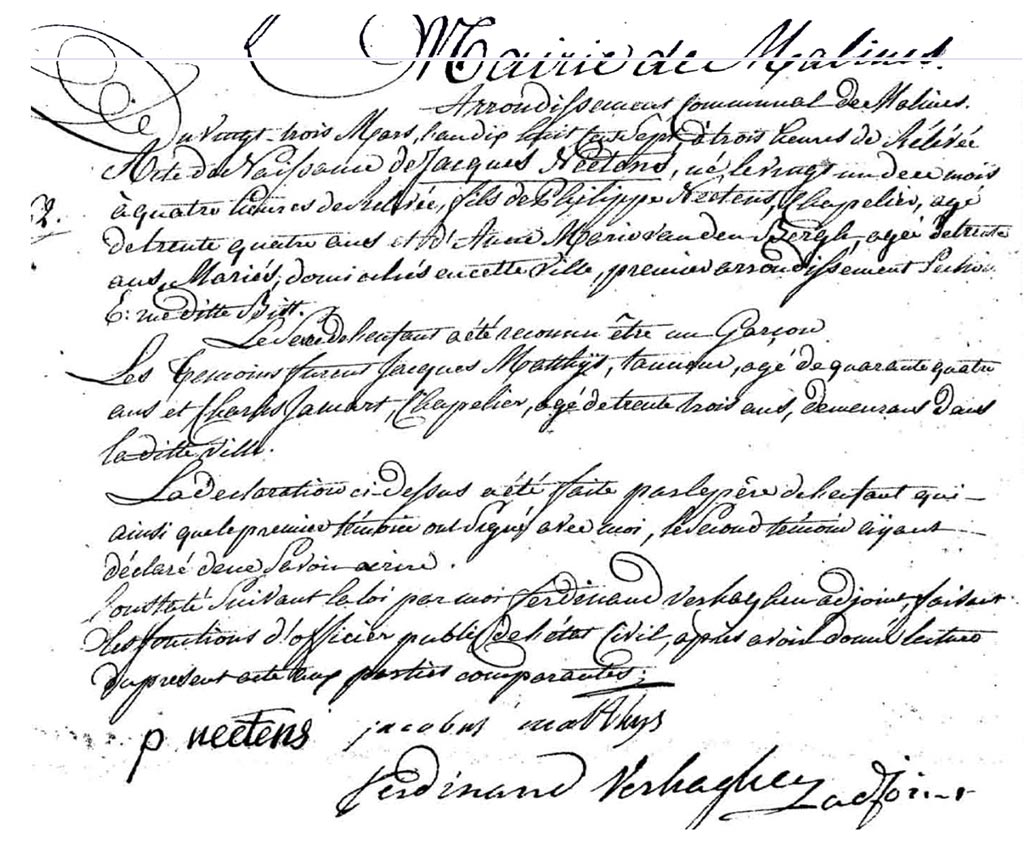 Mairie de Malines.
Arrondissement Communal de Malines.
Du Vingt-trois Mars, l'an dix huit cent sept, à trois heures de Rélévée
Acte de Naissance de Jacques Nectens, né le vingt un de ce mois
2. à quatre heures de Relevée, fils de Philippe Nectens, Chapelier, agé
de trente quatre ans et d'Anne Marie Van den Bergh, agée de trente
ans, Mariés, domiciliés en cette Ville, premier arrondissement Section
E: rue ditte Bist.
Le Sexe de l'enfant a été reconnu être un Garçon
Les Temoins furent Jacques Matthijs, tanneur, agé de quarante quatre
ans et Charles Jamart, Chapelier, agé de trente trois ans, demeurans dans
la ditte Ville.
La declaration ci-dessus a été faite par le père de l'enfant qui-
ainsi que le premier témoin ont Signé avec moi, le Second témoin aÿant
déclaré de ne Savoir ecrire.
Constaté Suivant la loi par moi Ferdinand Verhaghen adjoint, faisant
les fonctions d'officier public de l'état Civil, après avoir donné lecture
du present acte aux parties comparantes;
p nectens jacobus matthys
Ferdinand Verhaghen adjoint